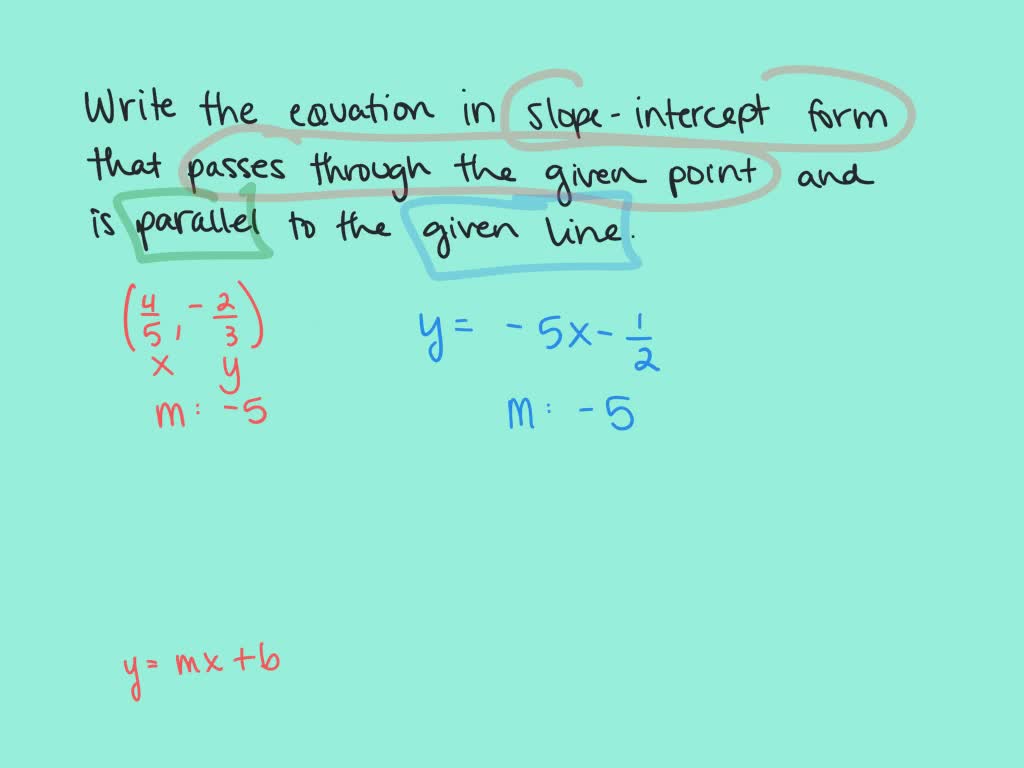 Write the equation in slope-intercept form
that passes through the given point and
is parallel to the given line.
(4/5, -2/3)
x y
m: -5
y = -5x - 1/2
m: -5
y = mx + b